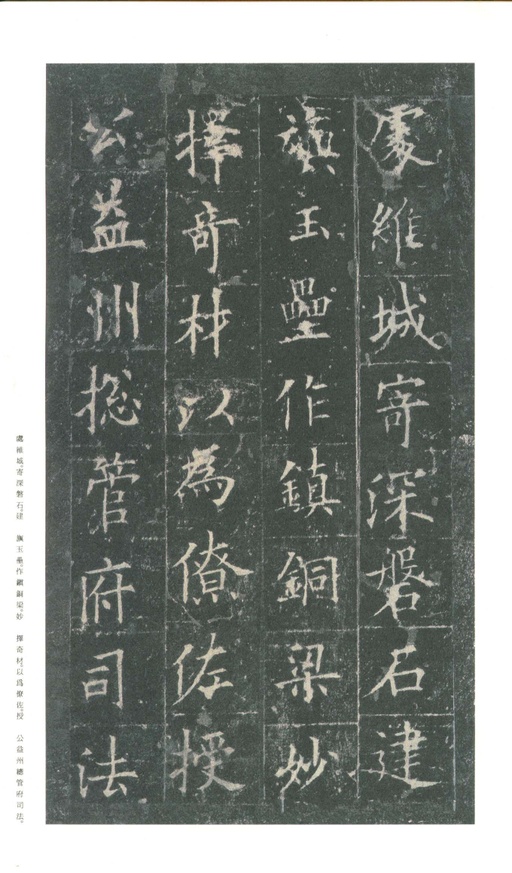 處維城寄深磐石建
旟玉壘作鎮銅梁妙
擇奇材以為僚佐授
公益州捴管府司法
處維城。寄深磐石。建 旟玉壘。作鎮銅梁。妙 擇奇材。以爲僚佐。授 公益州總管府司法。